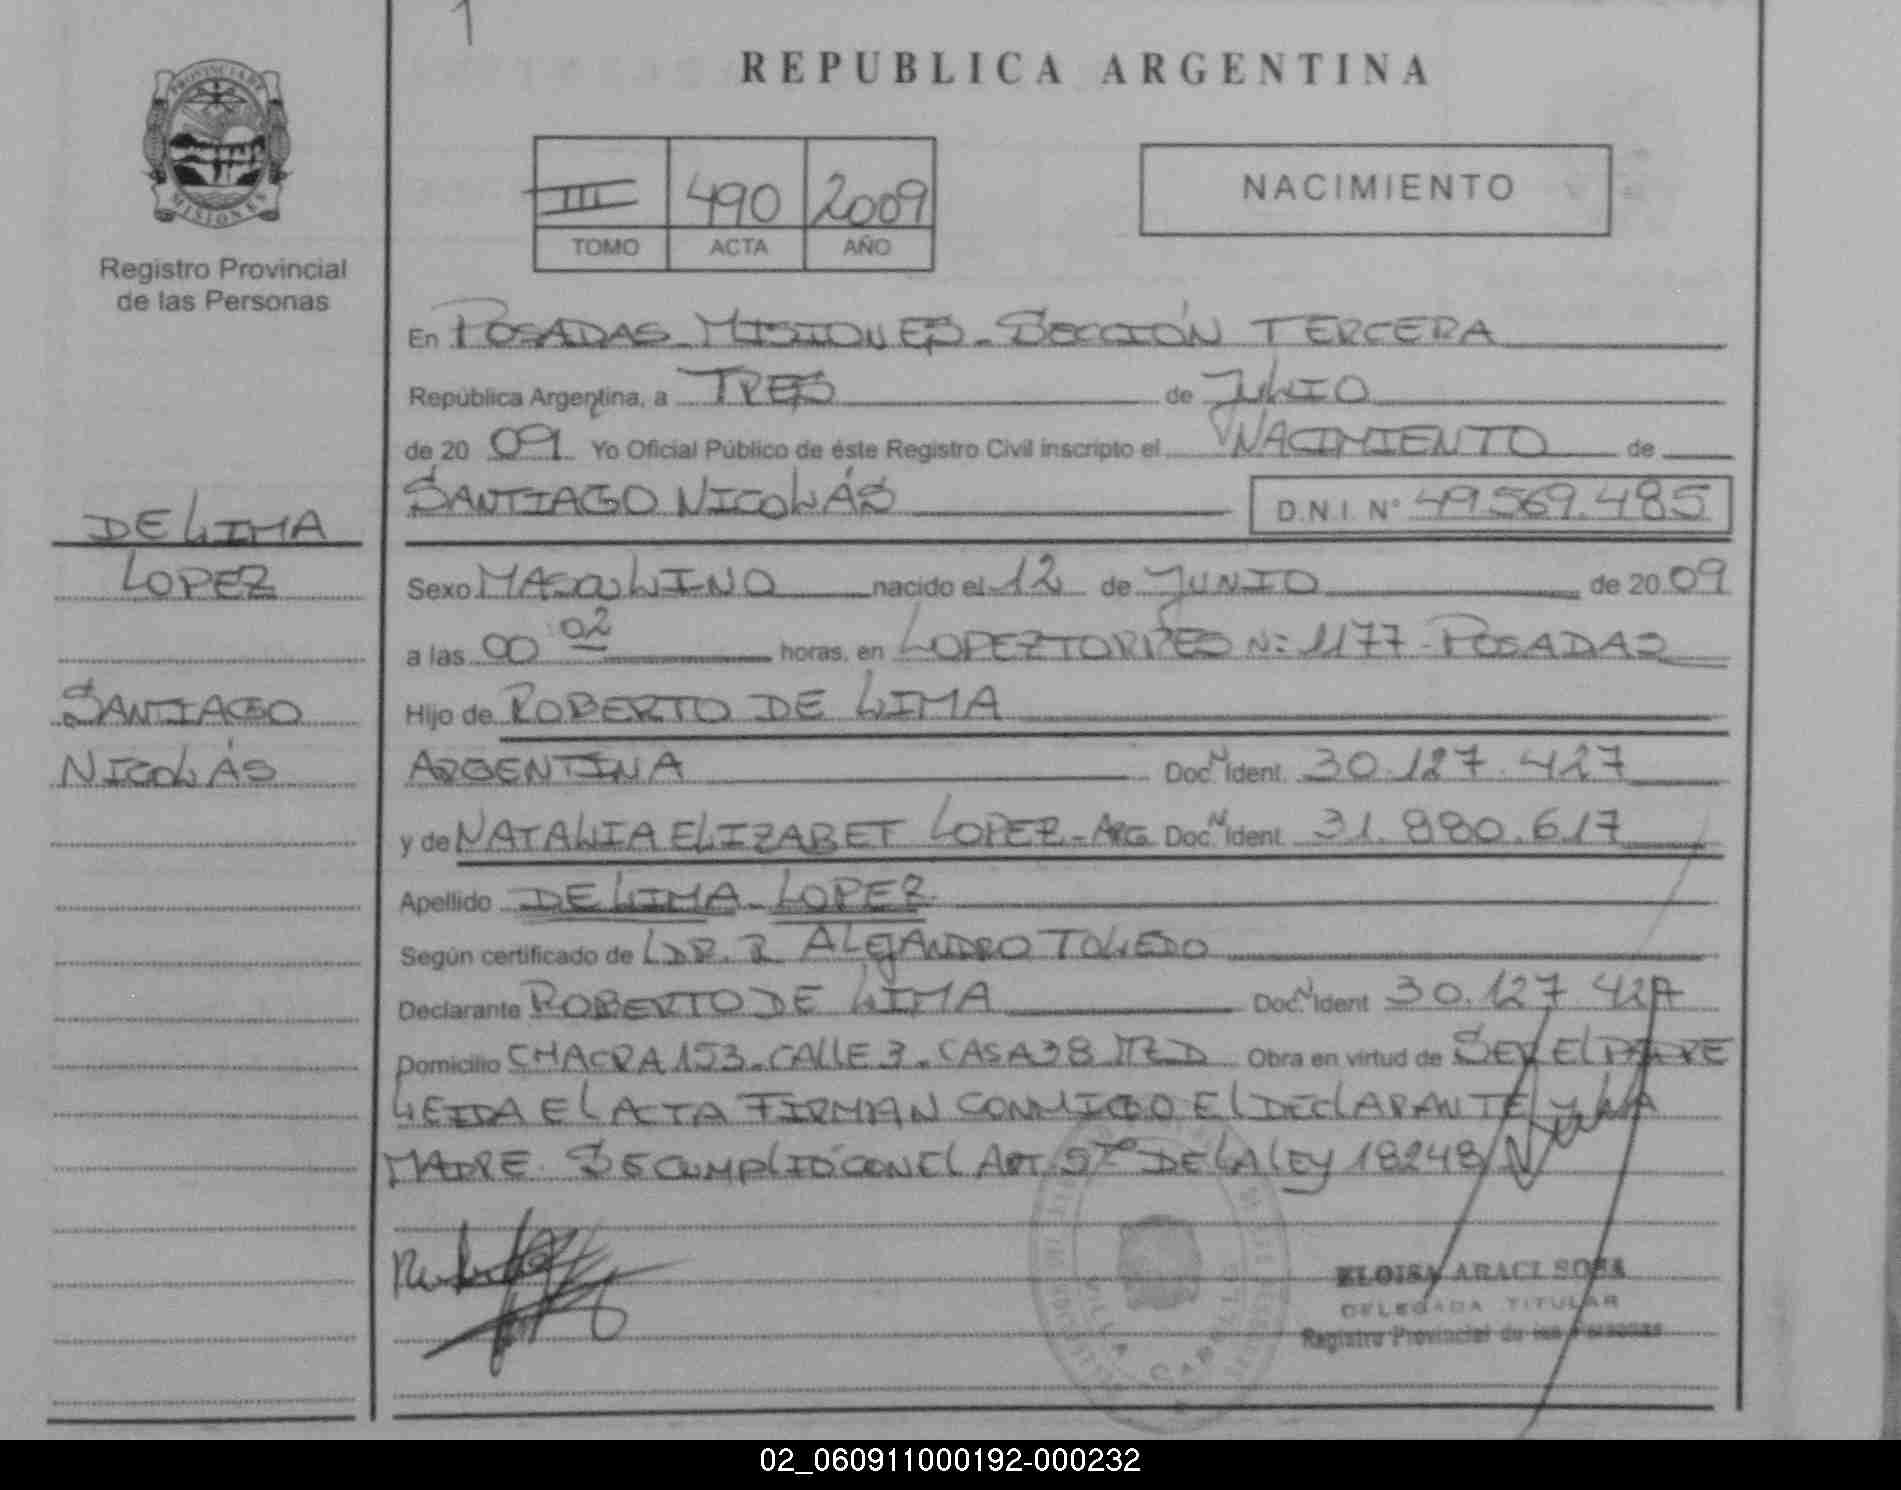 REPUBLICA ARGENTINA
PROVINCIA DE
MISIONES
Registro Provincial
de las Personas
III 490 2009
TOMO ACTA AÑO
NACIMIENTO
En POSADAS - MISIONES - SECCIÓN TERCERA
República Argentina, a TRES de JULIO
de 20 09 Yo Oficial Público de éste Registro Civil inscripto el NACIMIENTO de
SANTIAGO NICOLÁS D.N.I. N° 49.569.485
DE LIMA
LOPEZ
SANTIAGO
NICOLÁS
Sexo MASCULINO nacido el 12 de JUNIO de 20 09
a las 00 02 horas, en LOPEZ TORRES N: 1177 - POSADAS
Hijo de ROBERTO DE LIMA
ARGENTINA Doc. N Ident. 30.127.427
y de NATALIA ELIZABET LOPEZ - ARG Doc. N Ident. 31.880.617
Apellido DE LIMA - LOPEZ
Según certificado de DR. R ALEJANDRO TOLEDO
Declarante ROBERTO DE LIMA Doc. N Ident 30.127.427
Domicilio CHACRA 153 - CALLE 3 - CASA 38 MZ D Obra en virtud de SER EL PADRE
LEIDA EL ACTA FIRMAN CONMIGO EL DECLARANTE y LA
MADRE. SE CUMPLIÓ CON EL ART. 5TO DE LA LEY 18248
ELOISA ARACI SOSA
DELEGADA TITULAR
Registro Provincial de las Personas
VILLA CABELLO
02_060911000192-000232